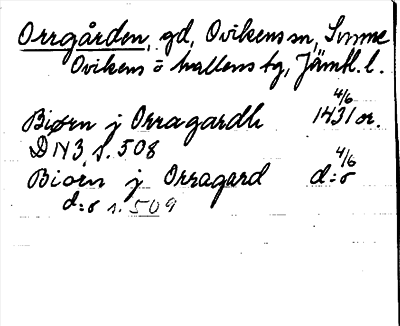 Orrgården, gd, Ovikens sn, Sunne
Ovikens o hallens tg, Jämtl. l.
Biørn j Orragardh 4/6 1431 or.
DN 3, s. 508
Biorn j Orragard 4/6 d:o
d:o s. 509